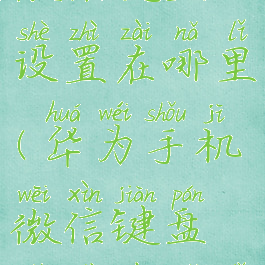 shè zhì zài nǎ lǐ
设置在哪里
huá wéi shǒu jī
(华为手机
wēi xìn jiàn pán
微信键盘